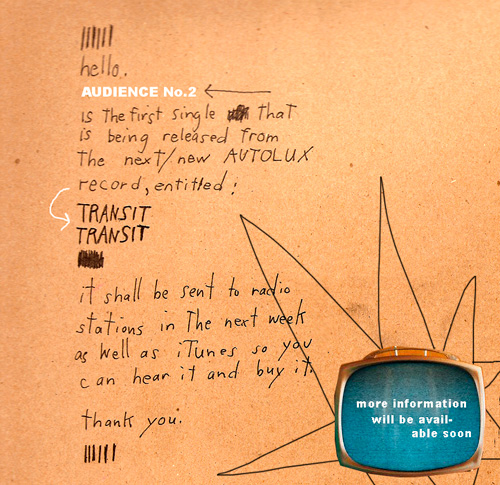 hello.
AUDIENCE No.2
is the first single that
is being released from
the next/new AUTOLUX
record, entitled:
TRANSIT
TRANSIT
it shall be sent to radio
stations in the next week
as well as iTunes so you
can hear it and buy it.
thank you.
more information
will be avail-
able soon